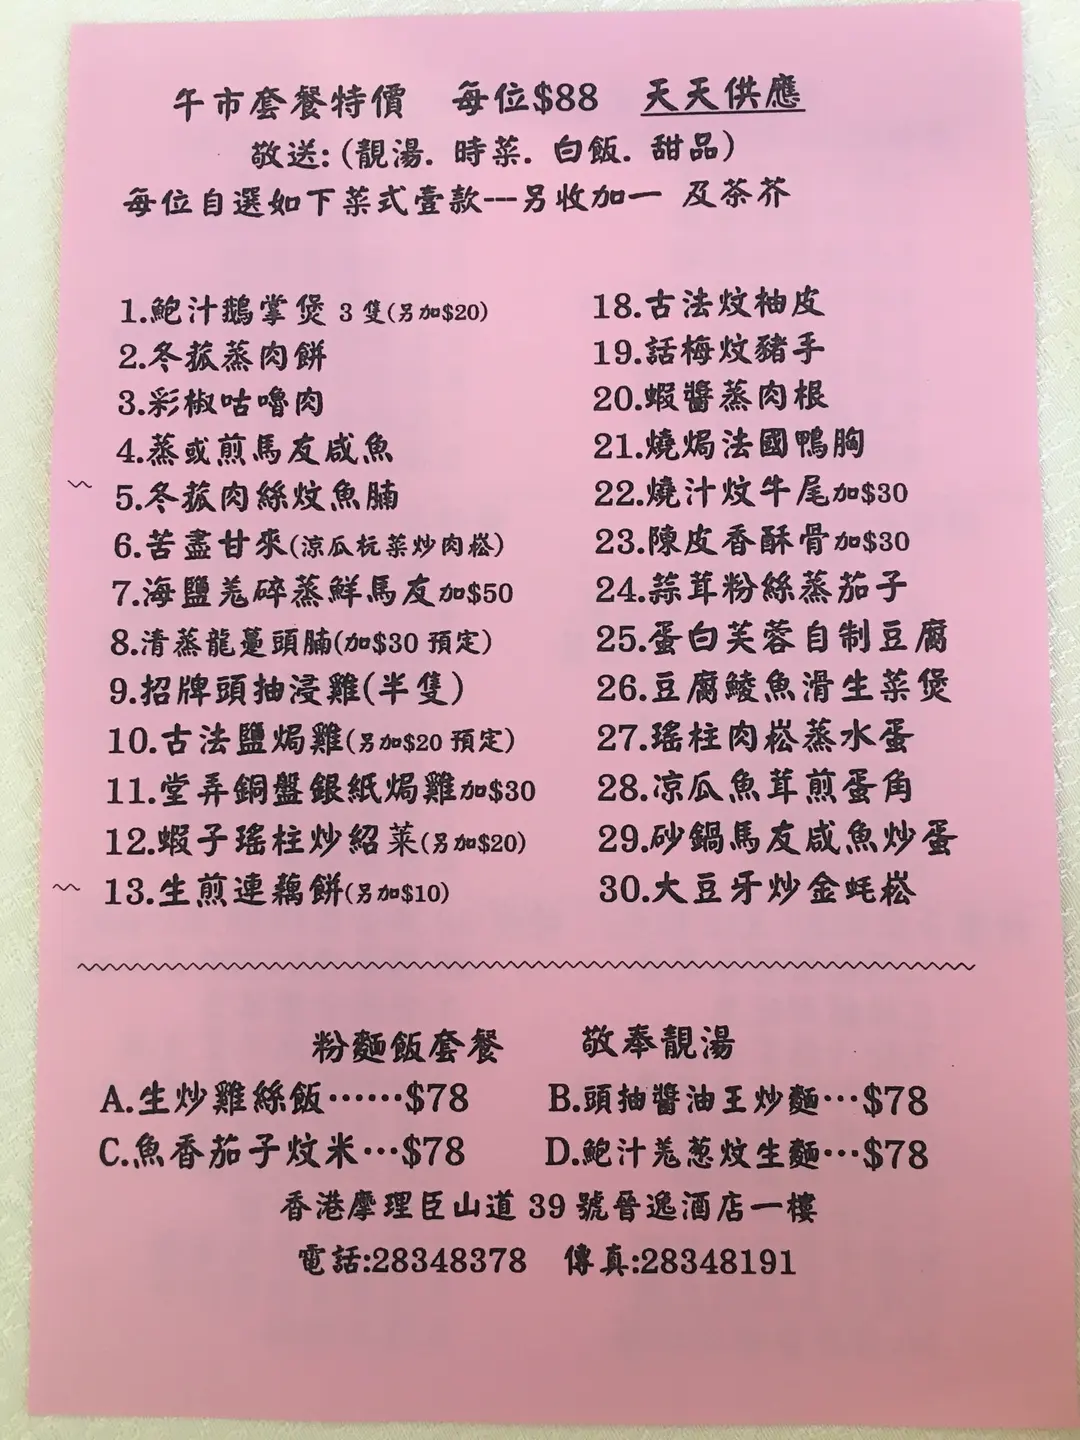 午市套餐特價 每位$88 天天供應
敬送:(靚湯. 時菜. 白飯. 甜品)
每位自選如下菜式壹款---另收加一 及茶芥
1.鮑汁鵝掌煲 3 隻(另加$20)
2.冬菰蒸肉餅
3.彩椒咕嚕肉
4.蒸或煎馬友咸魚
5.冬菰肉絲炆魚腩
6.苦盡甘來(涼瓜杬菜炒肉崧)
7.海鹽羗碎蒸鮮馬友加$50
8.清蒸龍躉頭腩(加$30 預定)
9.招牌頭抽浸雞(半隻)
10.古法鹽焗雞(另加$20 預定)
11.堂弄銅盤銀紙焗雞加$30
12.蝦子瑤柱炒紹菜(另加$20)
13.生煎連藕餅(另加$10)
18.古法炆柚皮
19.話梅炆豬手
20.蝦醬蒸肉根
21.燒焗法國鴨胸
22.燒汁炆牛尾加$30
23.陳皮香酥骨加$30
24.蒜茸粉絲蒸茄子
25.蛋白芙蓉自制豆腐
26.豆腐鯪魚滑生菜煲
27.瑤柱肉崧蒸水蛋
28.凉瓜魚茸煎蛋角
29.砂鍋馬友咸魚炒蛋
30.大豆牙炒金蚝崧
粉麵飯套餐 敬奉靚湯
A.生炒雞絲飯⋯⋯$78 B.頭抽醬油王炒麵⋯$78
C.魚香茄子炆米⋯$78 D.鮑汁羗葱炆生麵⋯$78
香港摩理臣山道 39 號晉逸酒店一樓
電話:28348378 傳真:28348191